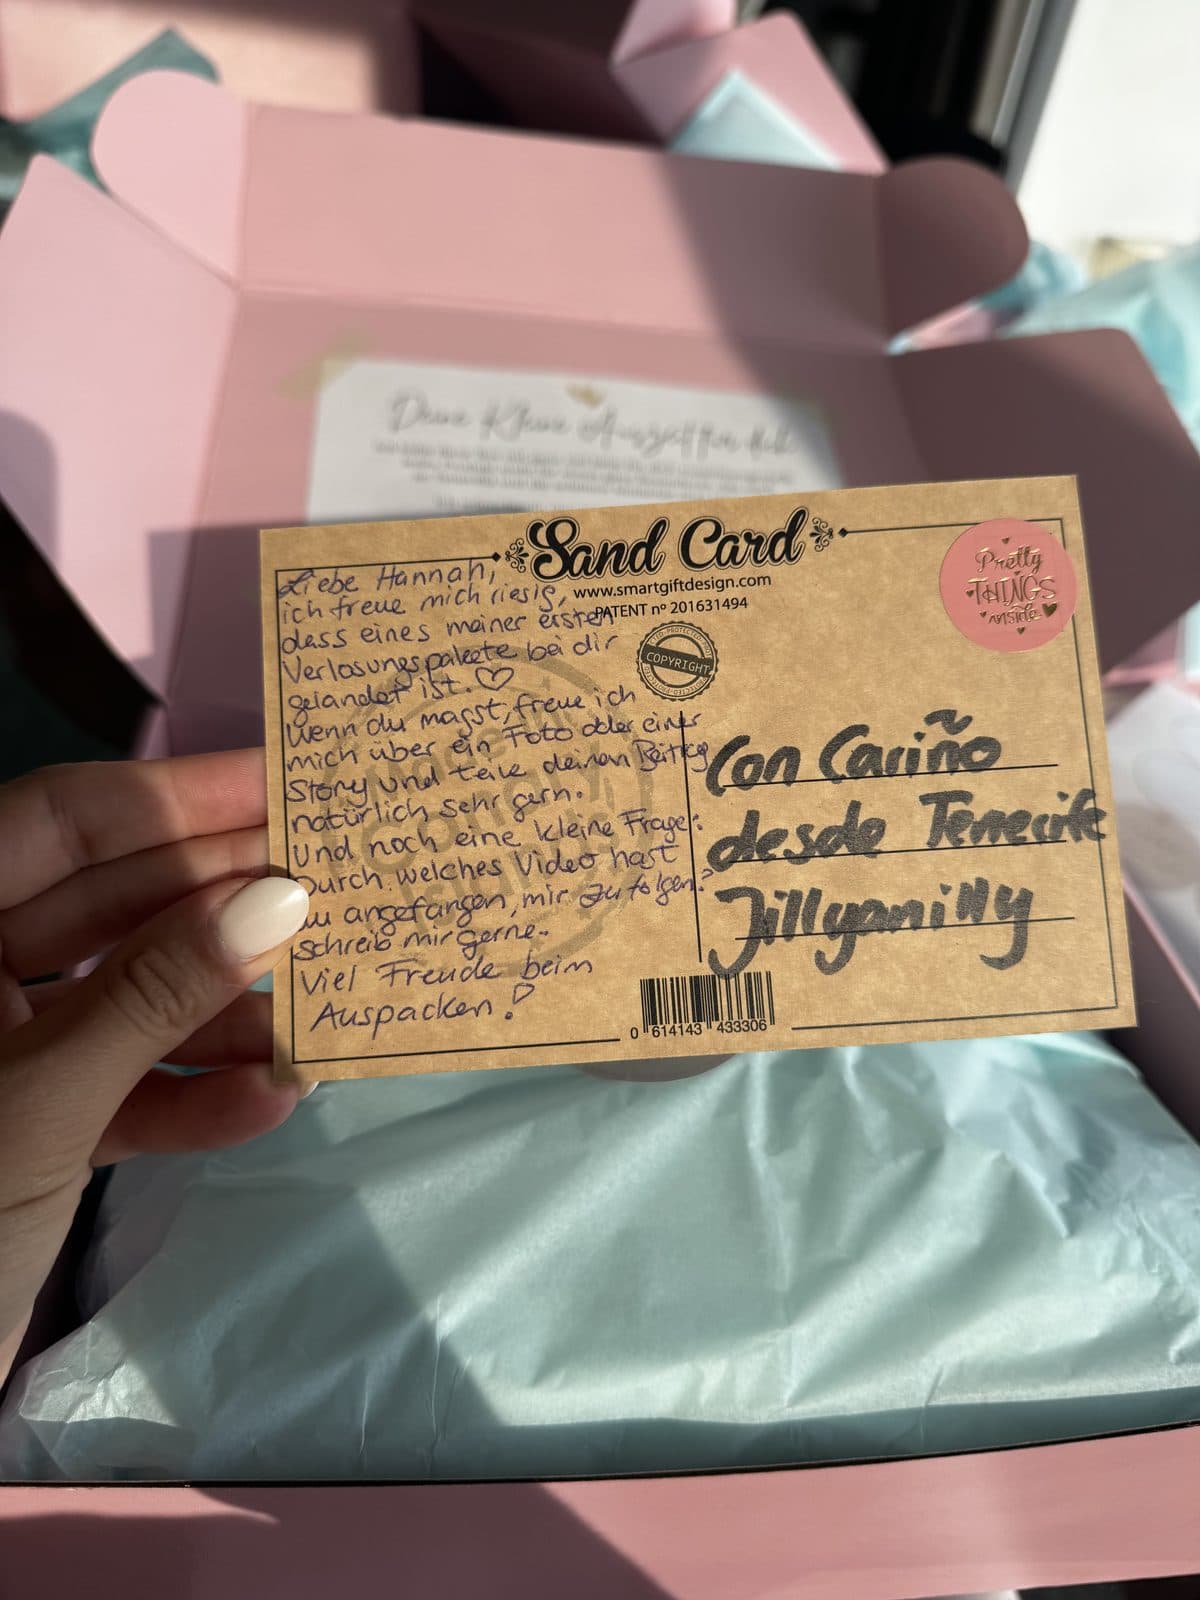 Deine kleine Auszeit für dich
Sand Card
www.smartgiftdesign.com
PATENT nº 201631494
COPYRIGHT
Pretty
THINGS
inside
Liebe Hannah,
ich freue mich riesig,
dass eines meiner ersten
Verlosungspakete bei dir
gelandet ist. ♡
Wenn du magst, freue ich
mich über ein Foto oder einer
Story und teile deinen Beitrag
natürlich sehr gern.
Und noch eine kleine Frage:
Durch welches Video hast
du angefangen, mir zu folgen?
Schreib mir gerne..
Viel Freude beim
Auspacken!
Con Cariño
desde Tenerife
Jillyanilly
0 614143 433306